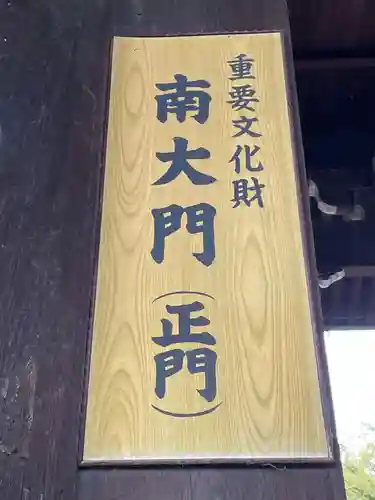 重要文化財
南大門
(正門)